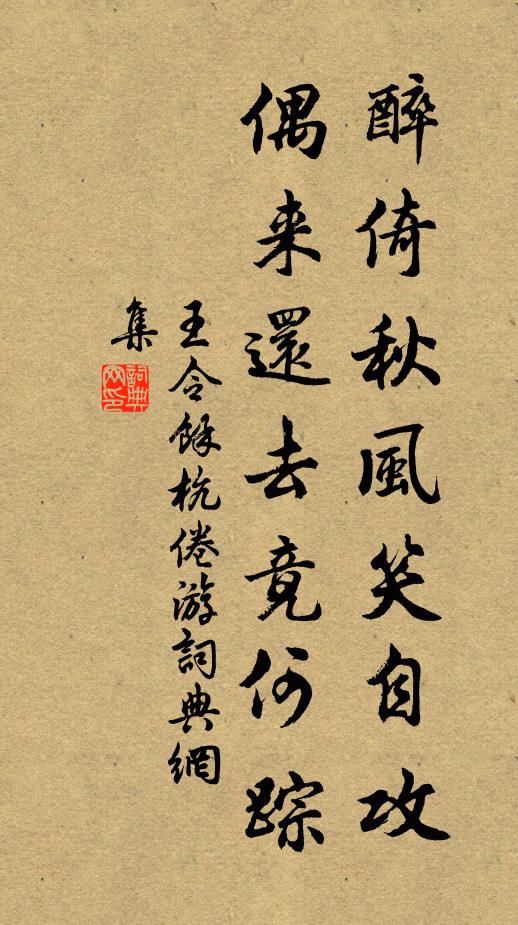 醉倚秋風笑自攻
偶来還去竟何踪
王令餘杭倦游詞典網
集
詞典網印